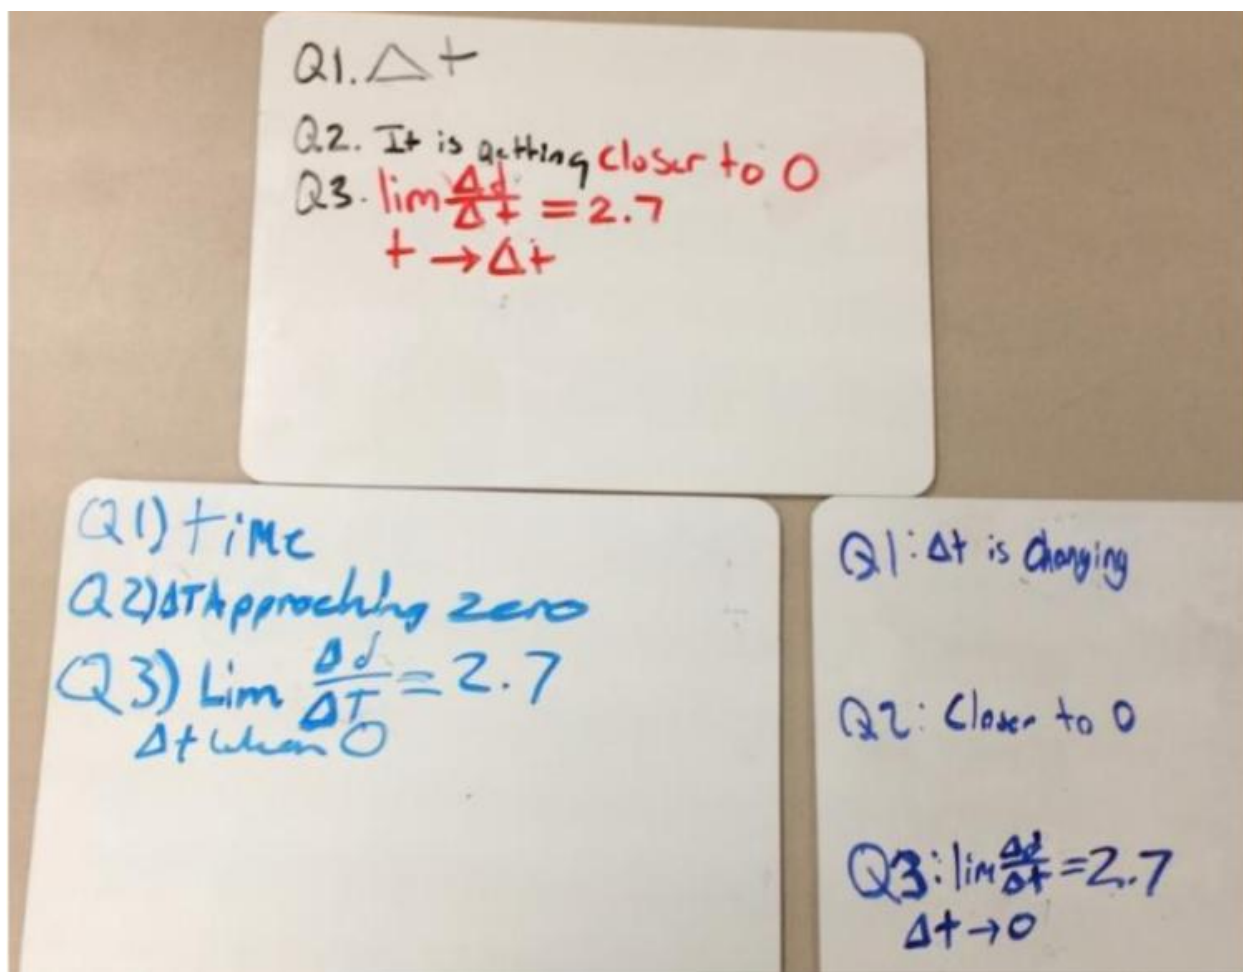 Q1. Δt
Q2. It is getting closer to 0
Q3. lim Δd/Δt = 2.7
t → Δt
Q1) time
Q2) ΔT Approaching zero
Q3) Lim Δd/ΔT = 2.7
Δt when 0
Q1: Δt is changing
Q2: Closer to 0
Q3: lim Δd/Δt = 2.7
Δt → 0